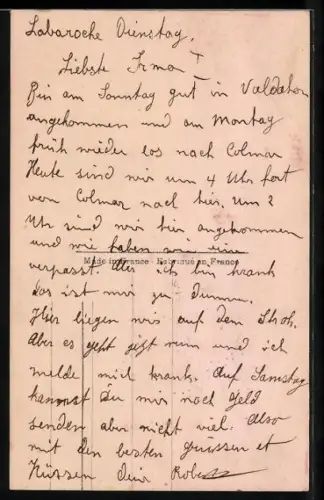 Labaroche Dienstag.
Liebste Irma!
Bin am Sonntag gut in
angekommen und am Montag
früh wieder los nach Colmar
Heute sind wir um 4 Uhr fort
von Colmar nach hier. Um 2
Uhr sind wir hier angekommen
und wie haben wir eine
Made in France - Fabriqué en France
verpasst. Aber ich bin krank
das ist mir zu dumm.
Hier liegen wir auf dem Stroh.
Aber es geht jezt rum und ich
melde mich krank. Auf Samstag
kannst Du mir noch Geld
senden aber nicht viel. Also
mit den besten grüssen et
Küssen dein Robert